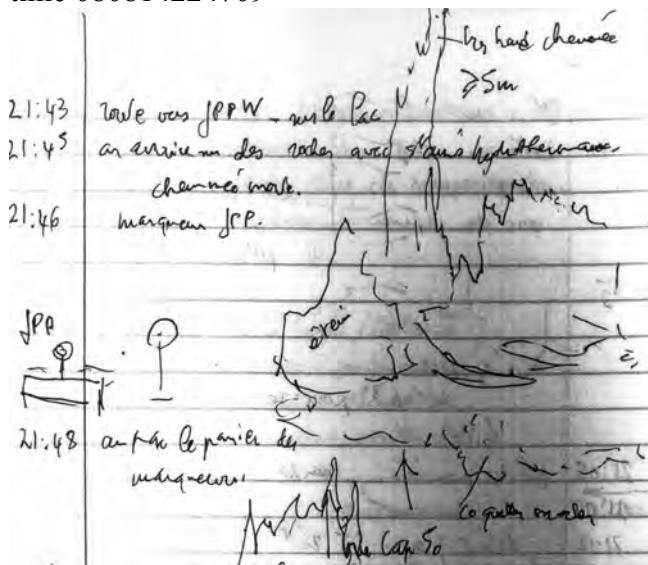 time 080814224709
très haute cheminée
≥5m
21:43 route vers JPPW sur le lac
21:45 on arrive sur des roches avec dépôts hydrothermaux,
cheminée morte.
21:46 marqueur JPP.
JPP
éteint
21:48 le panier des
marqueurs.
coquilles mortes
Cap 50